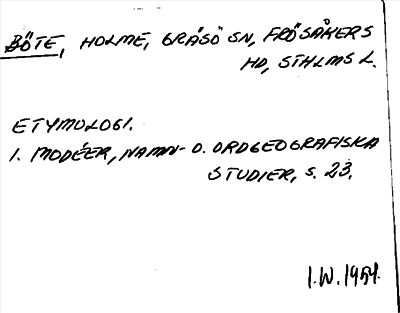 BÖTE, HOLME, GRÄSÖ SN, FRÖSÅKERS
HD, STHLMS L.
ETYMOLOGI.
I. MODÉER, NAMN- O. ORDGEOGRAFISKA
STUDIER, S. 23.
I.W. 1954.